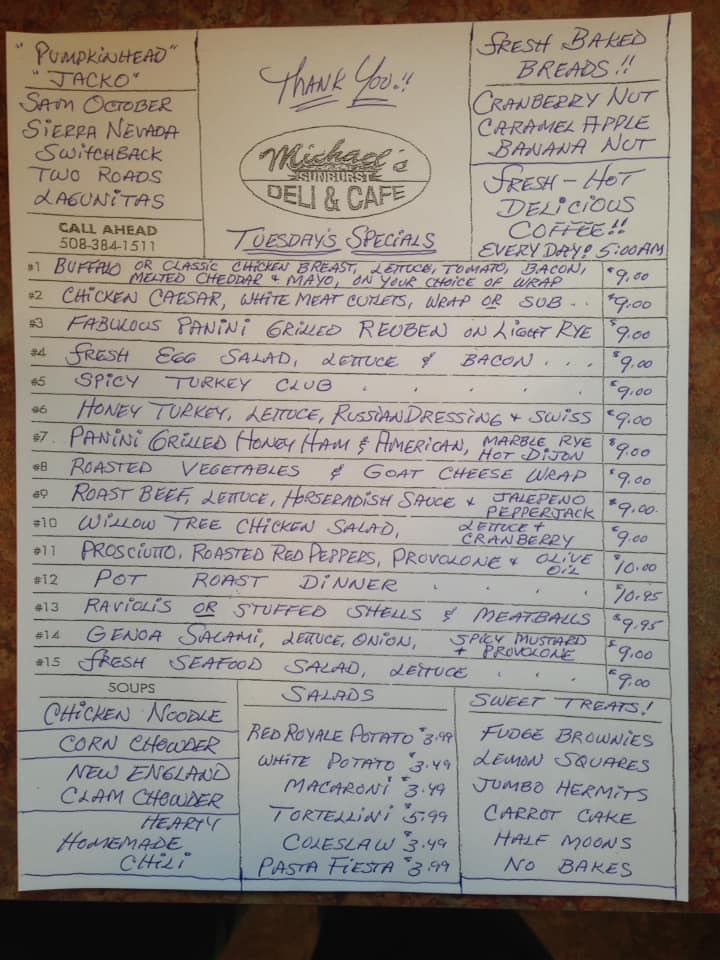 "PUMPKINHEAD"
"JACKO"
SAM OCTOBER
SIERRA NEVADA
SWITCHBACK
TWO ROADS
LAGUNITAS
CALL AHEAD
508-384-1511
THANK YOU!!
Michael's
SUNBURST
DELI & CAFE
TUESDAY'S SPECIALS
FRESH BAKED
BREADS!!
CRANBERRY NUT
CARAMEL APPLE
BANANA NUT
FRESH-HOT
DELICIOUS
COFFEE!!
EVERY DAY! 5:00AM
#1 BUFFALO OR CLASSIC CHICKEN BREAST, LETTUCE, TOMATO, BACON,
MELTED CHEDDAR & MAYO, ON YOUR CHOICE OF WRAP $9.00
#2 CHICKEN CAESAR, WHITE MEAT CUTLETS, WRAP OR SUB . . $9.00
#3 FABULOUS PANINI GRILLED REUBEN ON LIGHT RYE $9.00
#4 FRESH EGG SALAD, LETTUCE & BACON . . . $9.00
#5 SPICY TURKEY CLUB . . . . . $9.00
#6 HONEY TURKEY, LETTUCE, RUSSIAN DRESSING + SWISS $9.00
#7 PANINI GRILLED HONEY HAM & AMERICAN, MARBLE RYE
HOT DIJON $9.00
#8 ROASTED VEGETABLES & GOAT CHEESE WRAP $9.00
#9 ROAST BEEF, LETTUCE, HORSERADISH SAUCE + JALEPENO
PEPPERJACK $9.00
#10 WILLOW TREE CHICKEN SALAD, LETTUCE +
CRANBERRY $9.00
#11 PROSCIUTTO, ROASTED RED PEPPERS, PROVOLONE + OLIVE
OIL $10.00
#12 POT ROAST DINNER . . . . $10.95
#13 RAVIOLIS OR STUFFED SHELLS & MEATBALLS $9.95
#14 GENOA SALAMI, LETTUCE, ONION, SPICY MUSTARD
+ PROVOLONE $9.00
#15 FRESH SEAFOOD SALAD, LETTUCE . . . $9.00
SOUPS
CHICKEN NOODLE
CORN CHOWDER
NEW ENGLAND
CLAM CHOWDER
HEARTY
HOMEMADE
CHILI
SALADS
RED ROYALE POTATO $3.99
WHITE POTATO $3.49
MACARONI $3.49
TORTELLINI $5.99
COLESLAW $3.49
PASTA FIESTA $3.99
SWEET TREATS!
FUDGE BROWNIES
LEMON SQUARES
JUMBO HERMITS
CARROT CAKE
HALF MOONS
NO BAKES